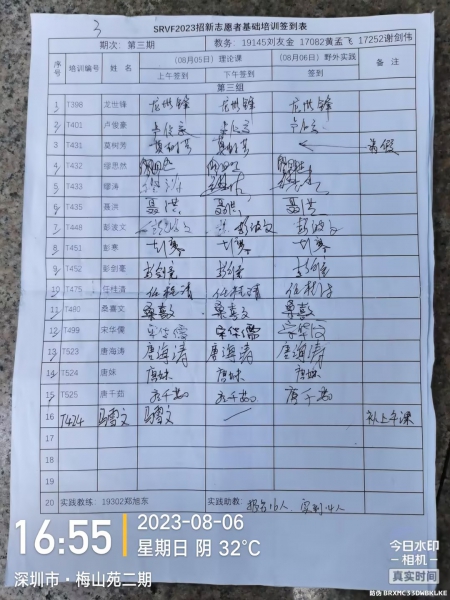 3
SRVF2023招新志愿者基础培训签到表
期次：第三期 教务：19145刘友金 17082黄孟飞 17252谢剑伟
序号 培训编号 姓名 （08月05日）理论课 （08月06日）野外实践 备注
上午签到 下午签到 签到
第三组
1 T398 龙世锋 龙世锋 龙世锋 龙世锋
2 T401 卢俊豪 卢俊豪 卢俊豪 卢俊豪
3 T431 莫树芳 莫树芳 莫树芳 请假
4 T432 缪思然
5 T433 缪涛
6 T435 聂洪 聂洪 聂洪 聂洪
7 T448 彭波文 彭波文 彭波文 彭波文
8 T451 彭寒 彭寒 彭寒 彭寒
9 T452 彭剑毫
10 T475 任桂清 任桂清 任桂清
11 T480 桑喜文 桑喜文 桑喜文 桑喜文
12 T499 宋华儒 宋华儒 宋华儒
13 T523 唐海涛 唐海涛 唐海涛 唐海涛
14 T524 唐妹 唐妹 唐妹 唐妹
15 T525 唐千茹 唐千茹
16 T424 马雪文 马雪文 补上午课
17
18
19
20 实践教练：19302郑旭东 实践助教： 报名16人，实到14人
16:55 2023-08-06
星期日 阴 32℃
深圳市·梅山苑二期
今日水印
相机
真实时间
防伪 BRXMC33DWBKLKE